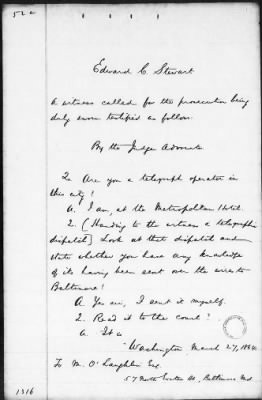 52a
Edward C. Stewart
A witness called for the prosecution being
duly sworn testified as follows
By the Judge Advocate
Q. Are you a telegraph operator in
this city?
A. I am, at the Metropolitan Hotel.
Q. (Handing to the witness a telegraphic
dispatch) Look at that dispatch and
state whether you have any knowledge
of its having been sent over the wires to
Baltimore?
A. Yes sir, I sent it myself.
Q. Read it to the court?
A. It is
"Washington March 27, 1864
To M. O'Laughlin Esq.
57 North Exeter St, Baltimore Md
1316